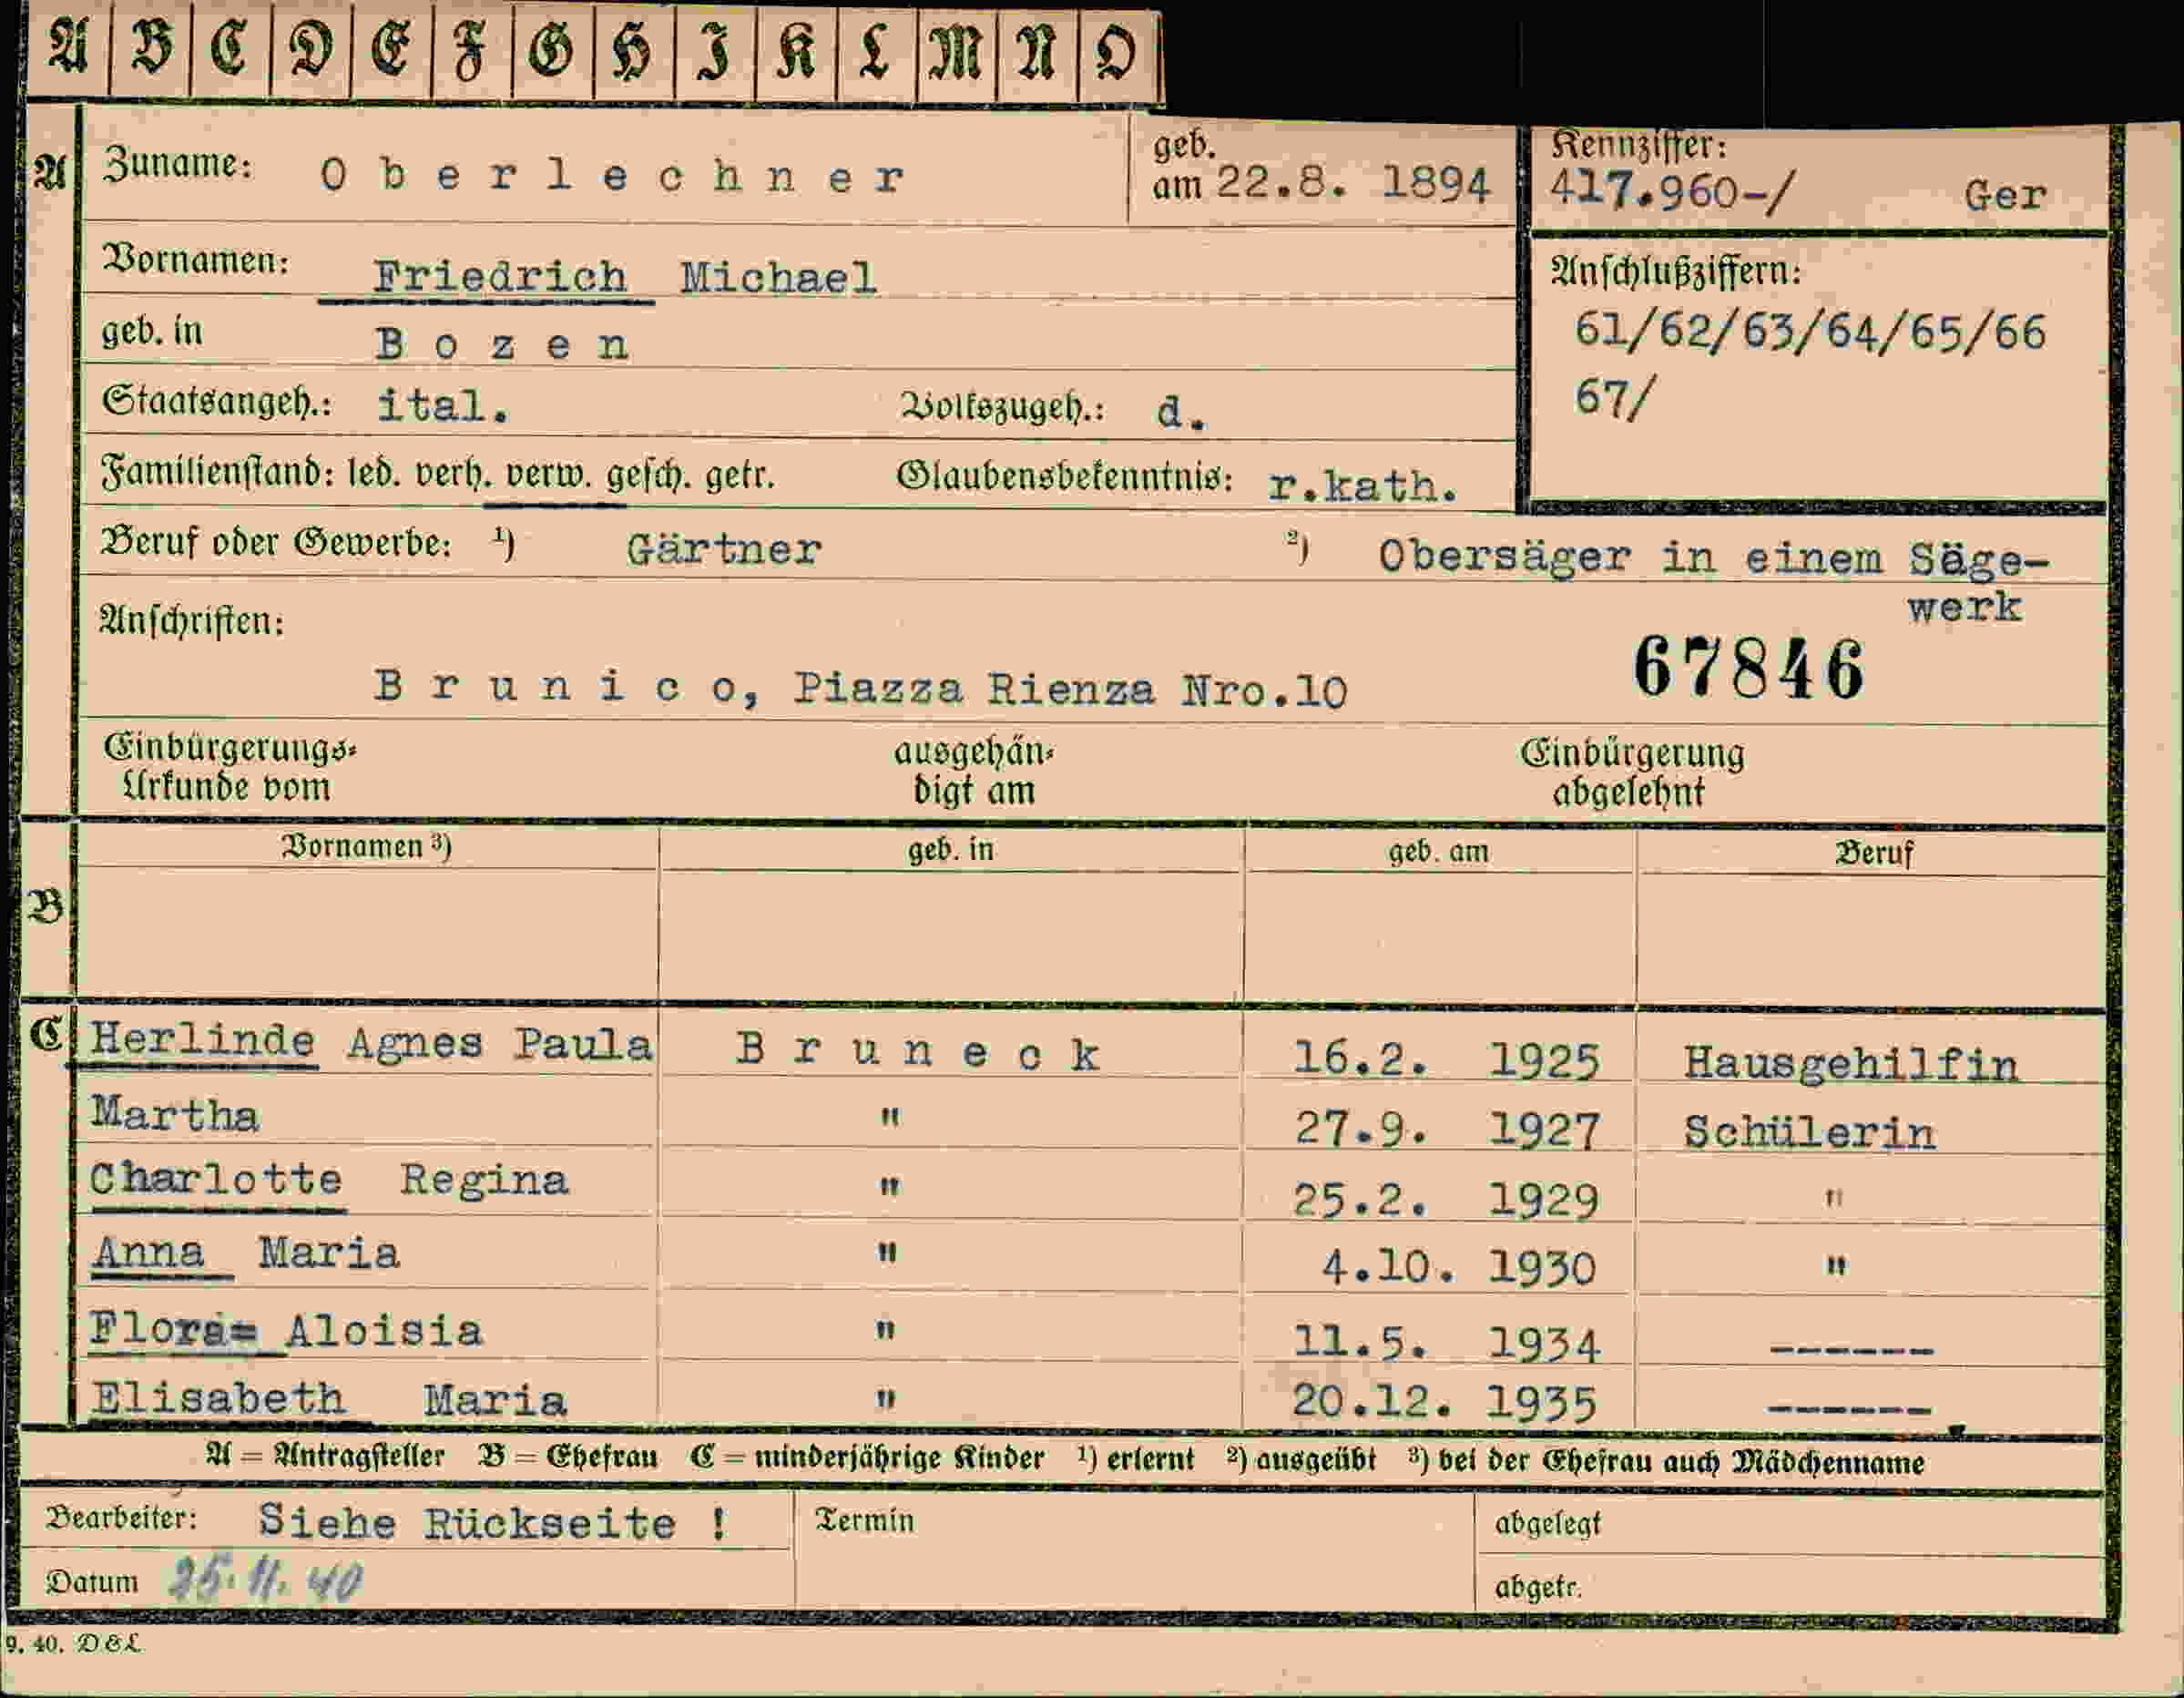 A B C D E F G H I K L M N O
A Zuname: Oberlechner geb. am 22.8. 1894 Kennziffer: 417.960-/ Ger
Vornamen: Friedrich Michael Anschlußziffern:
geb. in Bozen 61/62/63/64/65/66
Staatsangeh.: ital. Volkszugeh.: d. 67/
Familienstand: led. verh. verw. gesch. getr. Glaubensbekenntnis: r.kath.
Beruf oder Gewerbe: 1) Gärtner 2) Obersäger in einem Säge-
werk
Anschriften:
67846
Brunico, Piazza Rienza Nro.10
Einbürgerungs- ausgehän- Einbürgerung
Urkunde vom digt am abgelehnt
Vornamen 3) geb. in geb. am Beruf
B
C Herlinde Agnes Paula Bruneck 16.2. 1925 Hausgehilfin
Martha " 27.9. 1927 Schülerin
Charlotte Regina " 25.2. 1929 "
Anna Maria " 4.10. 1930 "
Flora= Aloisia " 11.5. 1934 ------
Elisabeth Maria " 20.12. 1935 ------
A = Antragsteller B = Ehefrau C = minderjährige Kinder 1) erlernt 2) ausgeübt 3) bei der Ehefrau auch Mädchenname
Bearbeiter: Siehe Rückseite ! Termin abgelegt
Datum 25.11.40 abgetr.
9. 40. D&L